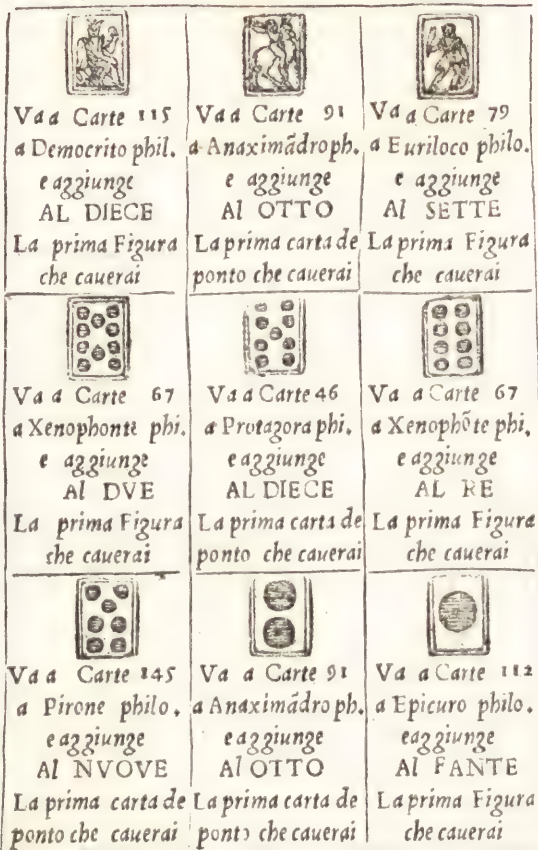 Va a Carte 115
a Democrito phil.
e aggiunge
AL DIECE
La prima Figura
che cauerai
Va a Carte 91
a Anaximãdro ph.
e aggiunge
Al OTTO
La prima carta de
ponto che cauerai
Va a Carte 79
a Euriloco philo.
e aggiunge
Al SETTE
La prima Figura
che cauerai
Va a Carte 67
a Xenophonte phi.
e aggiunge
Al DVE
La prima Figura
che cauerai
Va a Carte 46
a Protagora phi.
e aggiunge
AL DIECE
La prima carta de
ponto che cauerai
Va a Carte 67
a Xenophõte phi.
e aggiunge
AL RE
La prima Figura
che cauerai
Va a Carte 145
a Pirone philo.
e aggiunge
Al NVOVE
La prima carta de
ponto che cauerai
Va a Carte 91
a Anaximãdro ph.
e aggiunge
Al OTTO
La prima carta de
ponto che cauerai
Va a Carte 112
a Epicuro philo.
e aggiunge
Al FANTE
La prima Figura
che cauerai